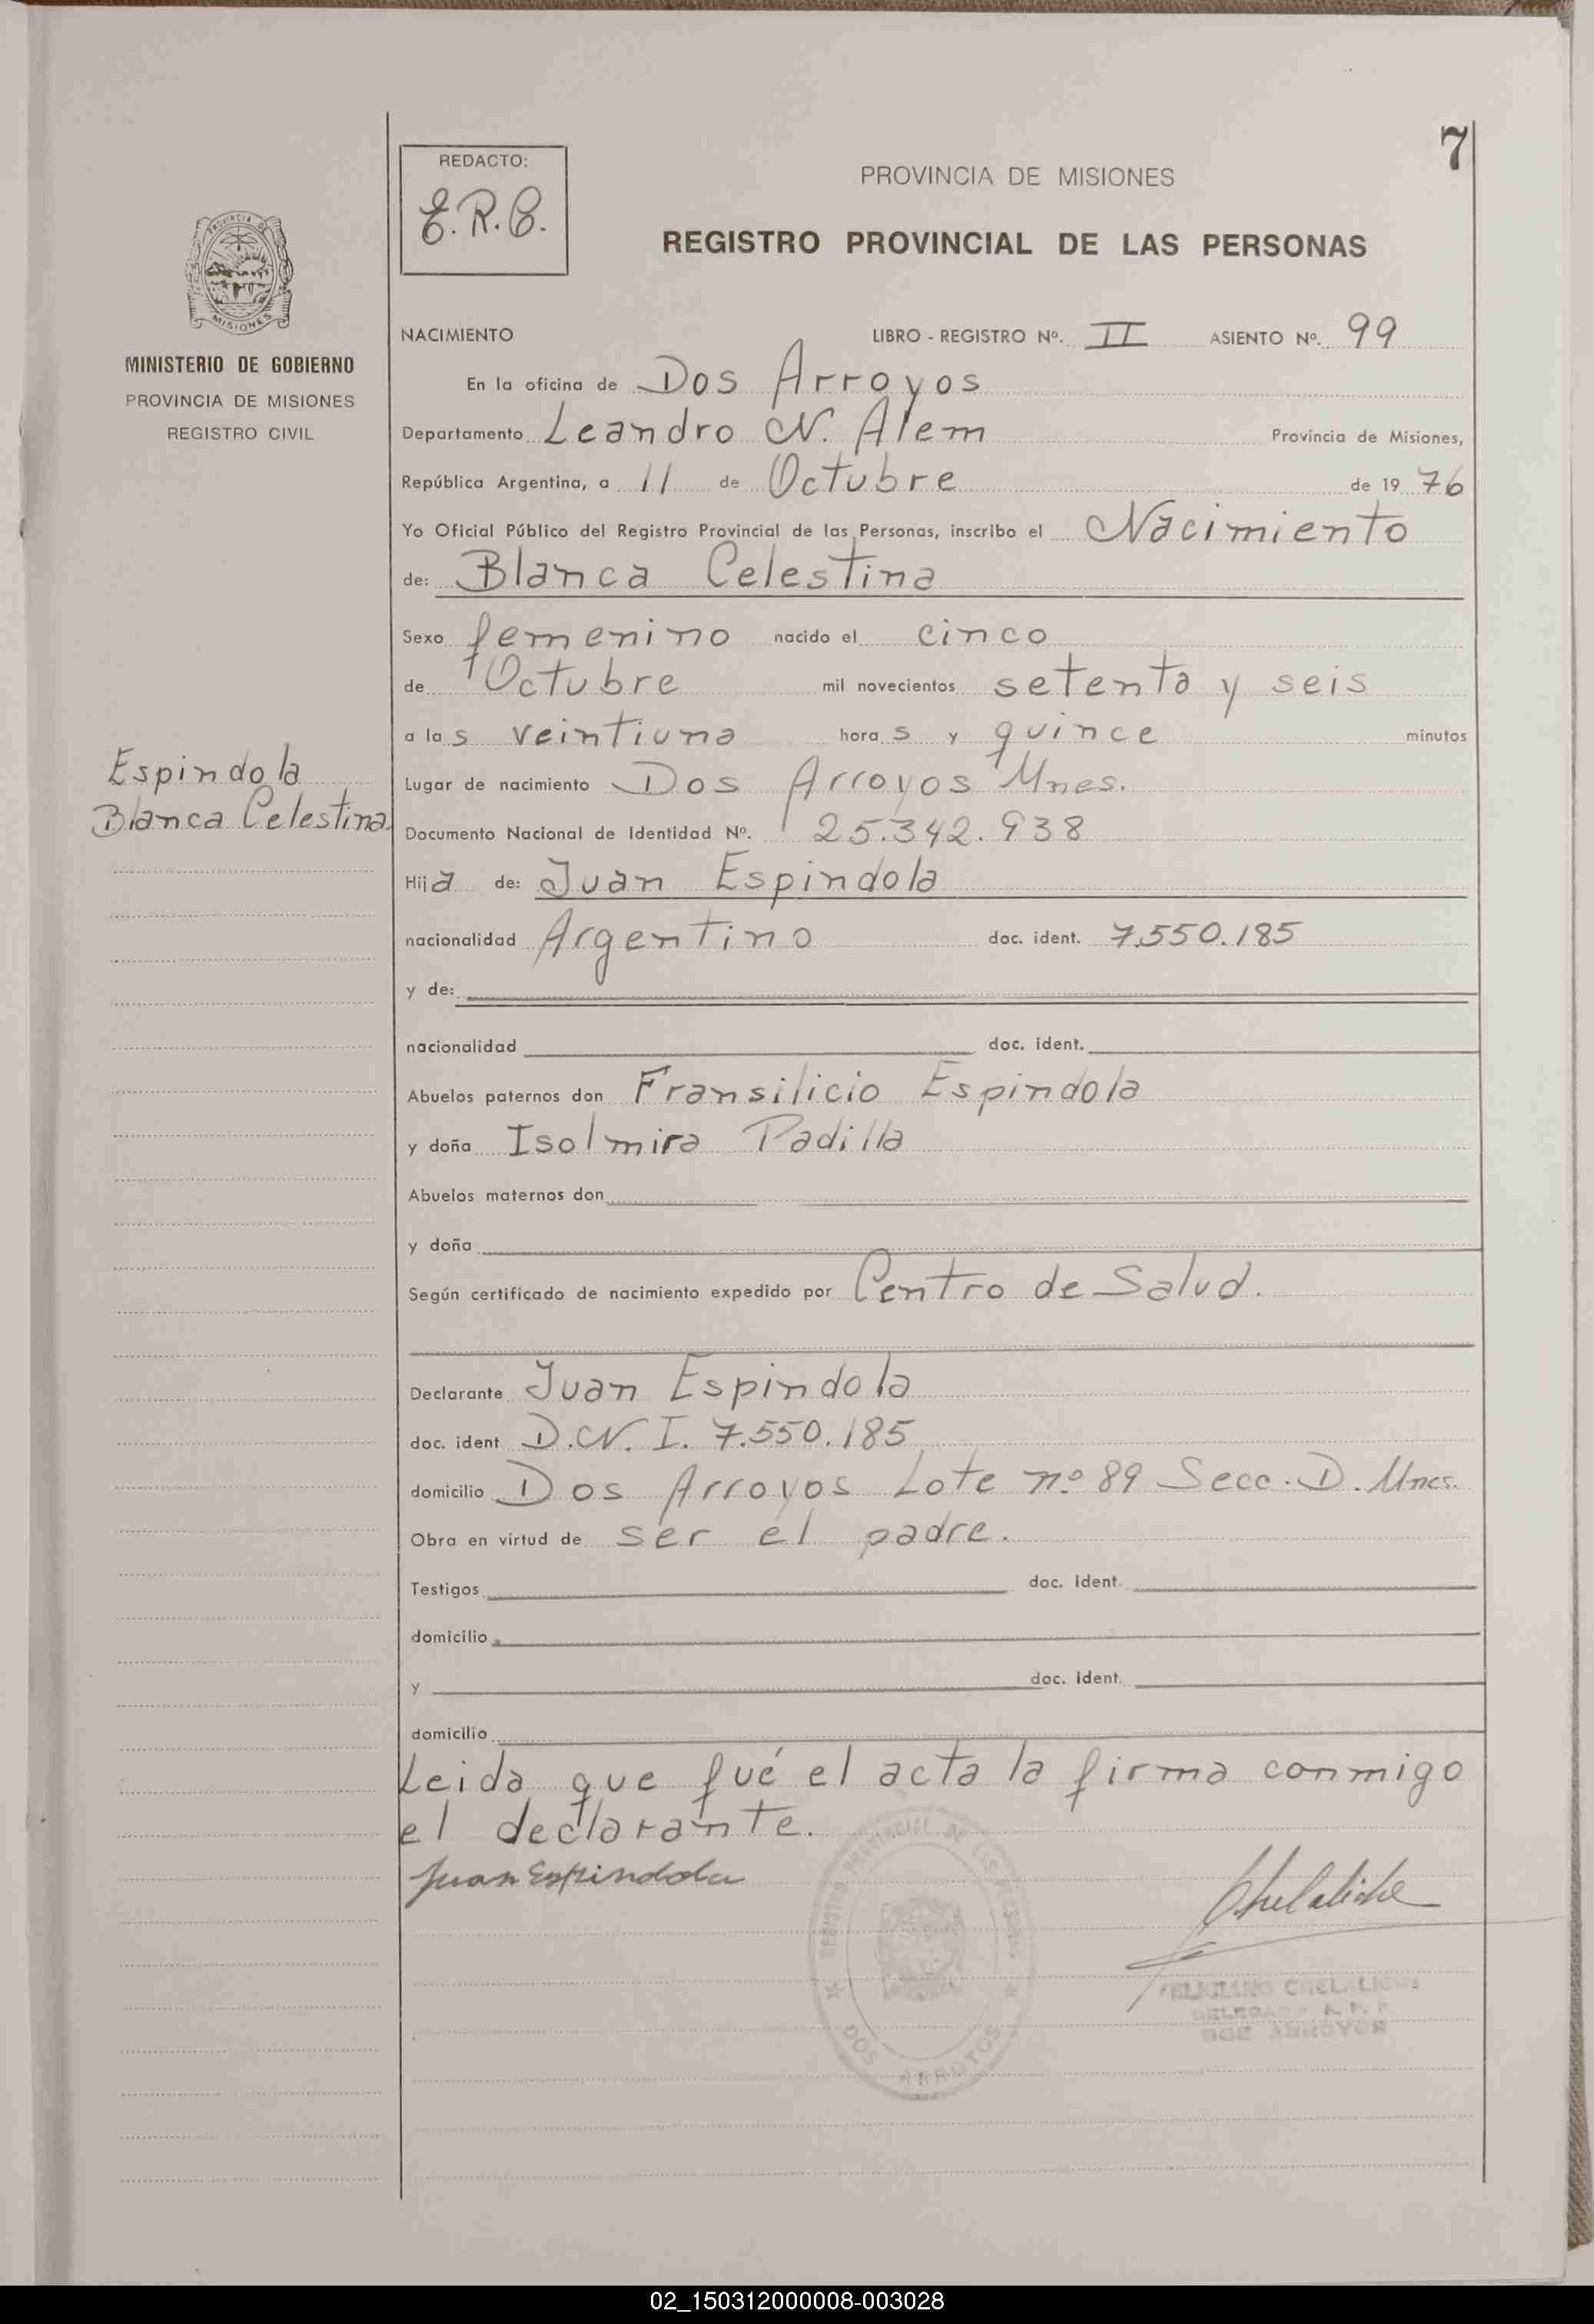 7
REDACTO:
E.R.C.
PROVINCIA DE MISIONES
REGISTRO PROVINCIAL DE LAS PERSONAS
PROVINCIA DE
MISIONES
MINISTERIO DE GOBIERNO
PROVINCIA DE MISIONES
REGISTRO CIVIL
Espindola
Blanca Celestina
NACIMIENTO LIBRO - REGISTRO Nº. II ASIENTO Nº. 99
En la oficina de Dos Arroyos
Departamento Leandro N. Alem Provincia de Misiones,
República Argentina, a 11 de Octubre de 19 76
Yo Oficial Público del Registro Provincial de las Personas, inscribo el Nacimiento
de: Blanca Celestina
Sexo femenino nacido el cinco
de Octubre mil novecientos setenta y seis
a las veintiuna horas y quince minutos
Lugar de nacimiento Dos Arroyos Mnes.
Documento Nacional de Identidad Nº. 25.342.938
Hija de: Juan Espindola
nacionalidad Argentino doc. ident. 7.550.185
y de:
nacionalidad doc. ident.
Abuelos paternos don Fransilicio Espindola
y doña Isolmira Padilla
Abuelos maternos don
y doña
Según certificado de nacimiento expedido por Centro de Salud.
Declarante Juan Espindola
doc. ident D.N.I. 7.550.185
domicilio Dos Arroyos Lote nº 89 Secc. D. Mnes.
Obra en virtud de ser el padre.
Testigos doc. ident.
domicilio
y doc. ident.
domicilio
Leida que fué el acta la firma conmigo
el declarante.
Juan Espindola
REGISTRO PROVINCIAL DE LAS PERSONAS
DOS ARROYOS
DOS ARROYOS
02_150312000008-003028